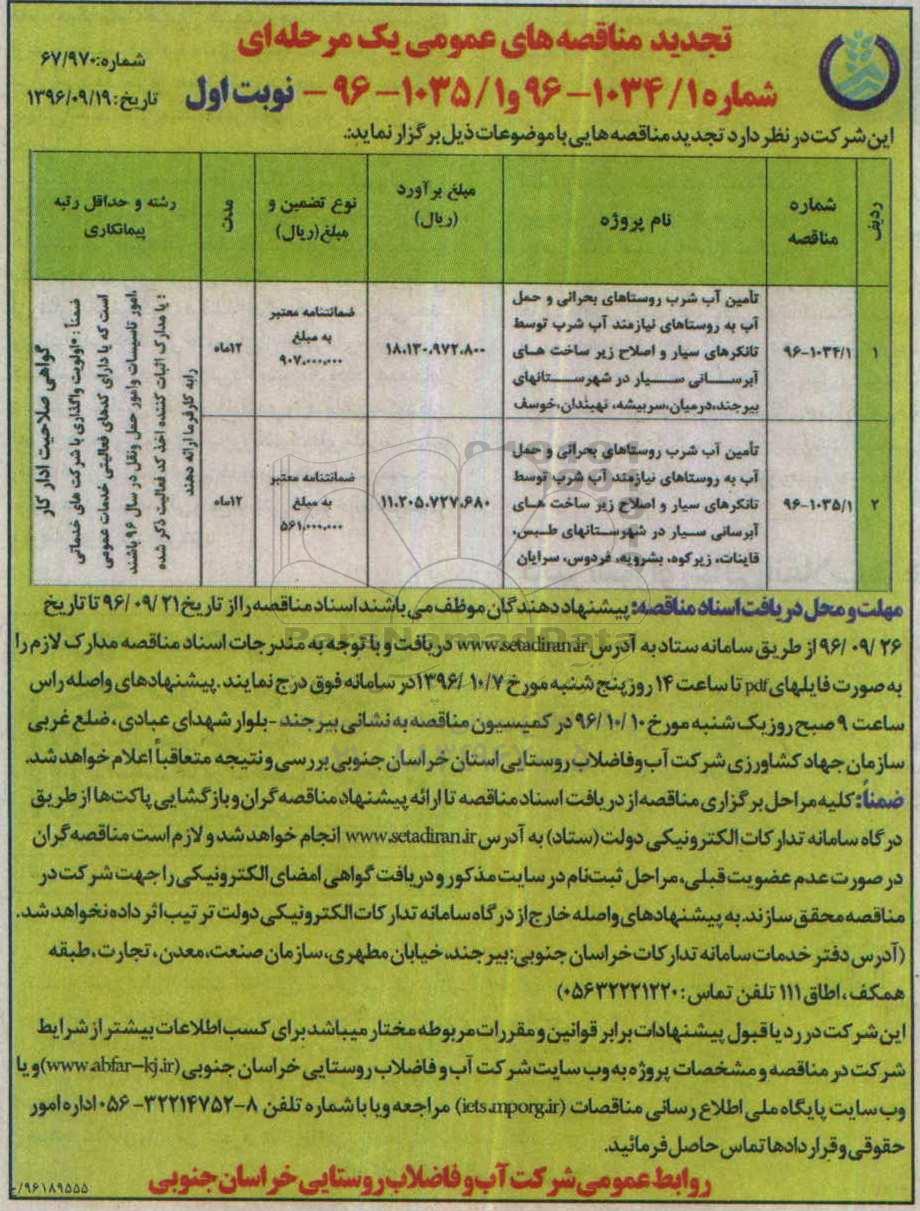 تجدید مناقصه های عمومی یک مرحله ای
شماره ۱۰۳۴/۱-۹۶ و ۱۰۳۵/۱-۹۶ - نوبت اول
شماره: ۶۷/۹۷۰
تاریخ: ۱۳۹۶/۰۹/۱۹
این شرکت در نظر دارد تجدید مناقصه هایی با موضوعات ذیل برگزار نماید:
ردیف
شماره مناقصه
نام پروژه
مبلغ برآورد (ریال)
نوع تضمین و مبلغ (ریال)
مدت
رشته و حداقل رتبه پیمانکاری
۱
۹۶-۱۰۳۴/۱
تأمین آب شرب روستاهای بحرانی و حمل
آب به روستاهای نیازمند آب شرب توسط
تانکرهای سیار و اصلاح زیر ساخت های
آبرسانی سیار در شهرستانهای
بیرجند،درمیان،سربیشه، نهبندان،خوسف
۱۸،۱۳۰،۹۷۲،۸۰۰
ضمانتنامه معتبر
به مبلغ
۹۰۷،۰۰۰،۰۰۰
۱۲ماه
۲
۹۶-۱۰۳۵/۱
تأمین آب شرب روستاهای بحرانی و حمل
آب به روستاهای نیازمند آب شرب توسط
تانکرهای سیار و اصلاح زیر ساخت های
آبرسانی سیار در شهرستانهای طبس،
قاینات، زیرکوه، بشرویه، فردوس، سرایان
۱۱،۲۰۵،۷۲۷،۶۸۰
ضمانتنامه معتبر
به مبلغ
۵۶۱،۰۰۰،۰۰۰
۱۲ماه
گواهی صلاحیت ادار کار
ضمناً : اولویت واگذاری با شرکت های خدماتی
است که یا دارای کدهای فعالیتی خدمات عمومی
امور تاسیسات وامور حمل ونقل در سال ۹۶ باشند
: یا مدارک اثبات کننده اخذ کد فعالیت ذکر شده
رابه کارفرما ارائه دهند
مهلت و محل دریافت اسناد مناقصه: پیشنهاد دهندگان موظف می باشند اسناد مناقصه را از تاریخ ۹۶/۰۹/۲۱ تا تاریخ
۹۶/۰۹/۲۶ از طریق سامانه ستاد به آدرس www.setadiran.ir دریافت و با توجه به مندرجات اسناد مناقصه مدارک لازم را
به صورت فایلهای pdf تا ساعت ۱۴ روز پنج شنبه مورخ ۱۳۹۶/۱۰/۷ در سامانه فوق درج نمایند. پیشنهادهای واصله راس
ساعت ۹ صبح روز یک شنبه مورخ ۹۶/۱۰/۱۰ در کمیسیون مناقصه به نشانی بیرجند - بلوار شهدای عبادی، ضلع غربی
سازمان جهاد کشاورزی شرکت آب و فاضلاب روستایی استان خراسان جنوبی بررسی و نتیجه متعاقباً اعلام خواهد شد.
ضمناً: کلیه مراحل برگزاری مناقصه از دریافت اسناد مناقصه تا ارائه پیشنهاد مناقصه گران و بازگشایی پاکت ها از طریق
درگاه سامانه تدارکات الکترونیکی دولت (ستاد) به آدرس www.setadiran.ir انجام خواهد شد و لازم است مناقصه گران
در صورت عدم عضویت قبلی، مراحل ثبت نام در سایت مذکور و دریافت گواهی امضای الکترونیکی را جهت شرکت در
مناقصه محقق سازند. به پیشنهادهای واصله خارج از درگاه سامانه تدارکات الکترونیکی دولت ترتیب اثر داده نخواهد شد.
(آدرس دفتر خدمات سامانه تدارکات خراسان جنوبی: بیرجند، خیابان مطهری، سازمان صنعت، معدن، تجارت، طبقه
همکف، اطاق ۱۱۱ تلفن تماس: ۰۵۶۳۲۲۲۱۲۲۰)
این شرکت در رد یا قبول پیشنهادات برابر قوانین و مقررات مربوطه مختار میباشد برای کسب اطلاعات بیشتر از شرایط
شرکت در مناقصه و مشخصات پروژه به وب سایت شرکت آب و فاضلاب روستایی خراسان جنوبی (www.abfar-kj.ir) و یا
وب سایت پایگاه ملی اطلاع رسانی مناقصات (iets.mporg.ir) مراجعه ویا با شماره تلفن ۸-۳۲۲۱۴۷۵۲-۰۵۶ اداره امور
حقوقی و قراردادها تماس حاصل فرمائید.
روابط عمومی شرکت آب و فاضلاب روستایی خراسان جنوبی
۹۶۱۸۹۵۵۵/-